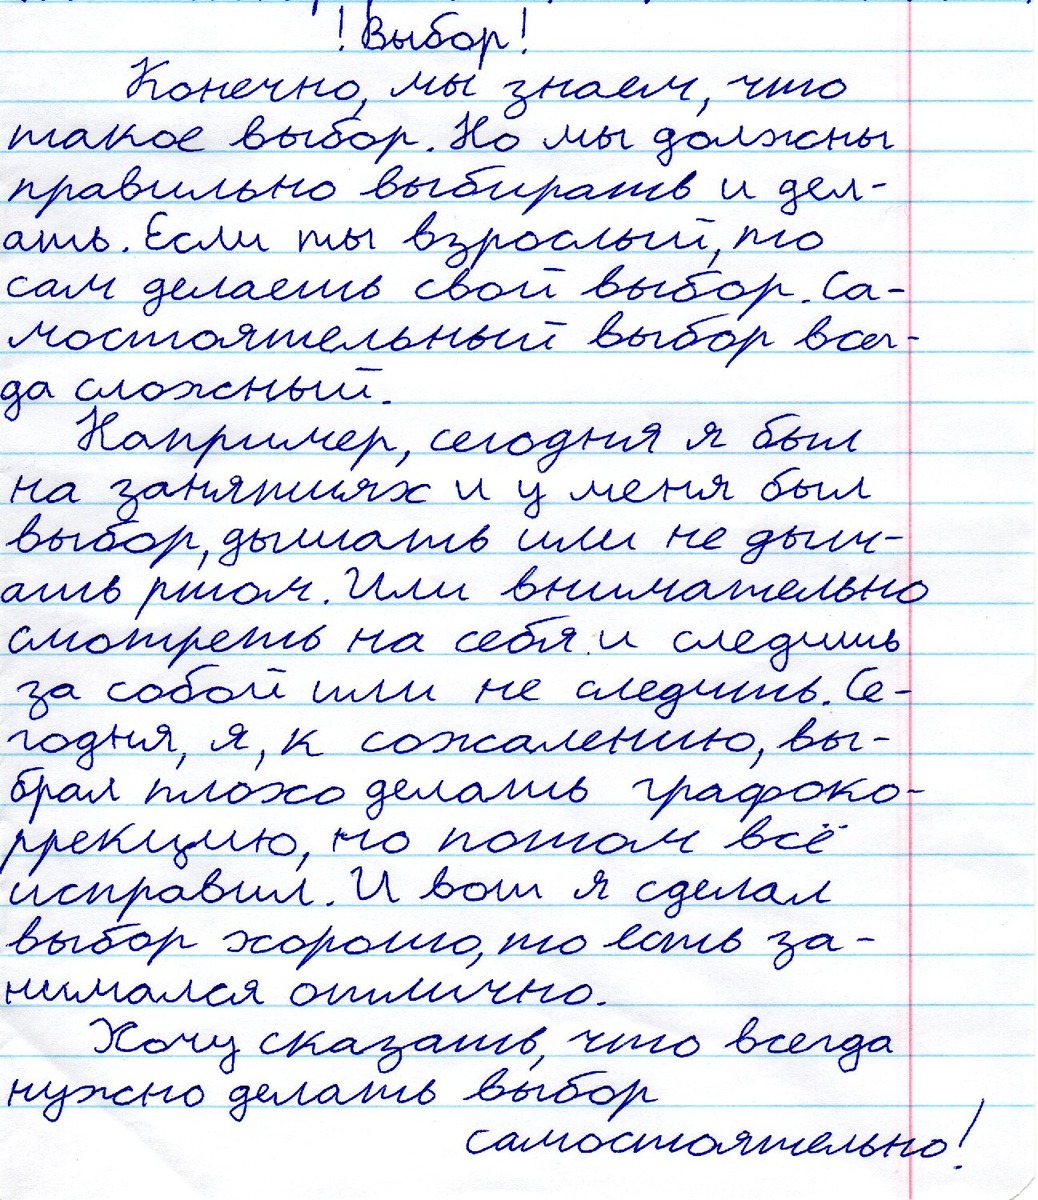 ! Выбор!
Конечно, мы знаем, что
такое выбор. Но мы должны
правильно выбирать и дел-
ать. Если ты взрослый, то
сам делаешь свой выбор. Са-
мостоятельный выбор всег-
да сложный.
Например, сегодня я был
на занятиях и у меня был
выбор, дышать или не дыш-
ать ртом. Или внимательно
смотреть на себя и следишь
за собой или не следить. Се-
годня, я, к сожалению, вы-
брал плохо делать графоко-
ррекцию, но потом всё
исправил. И вот я сделал
выбор хорошо, то есть за-
нимался отлично.
Хочу сказать, что всегда
нужно делать выбор
самостоятельно!